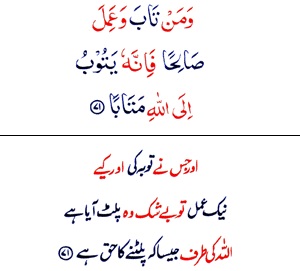 وَمَنْ تَابَ وَعَمِلَ
صَالِحًا فَاِنَّهٗ يَتُوْبُ
اِلَى اللّٰهِ مَتَابًا ﴿۷۱﴾
اور جس نے توبہ کی اور کیے
نیک عمل تو بے شک وہ پلٹ آیا ہے
اللہ کی طرف جیسا کہ پلٹنے کا حق ہے ﴿۷۱﴾